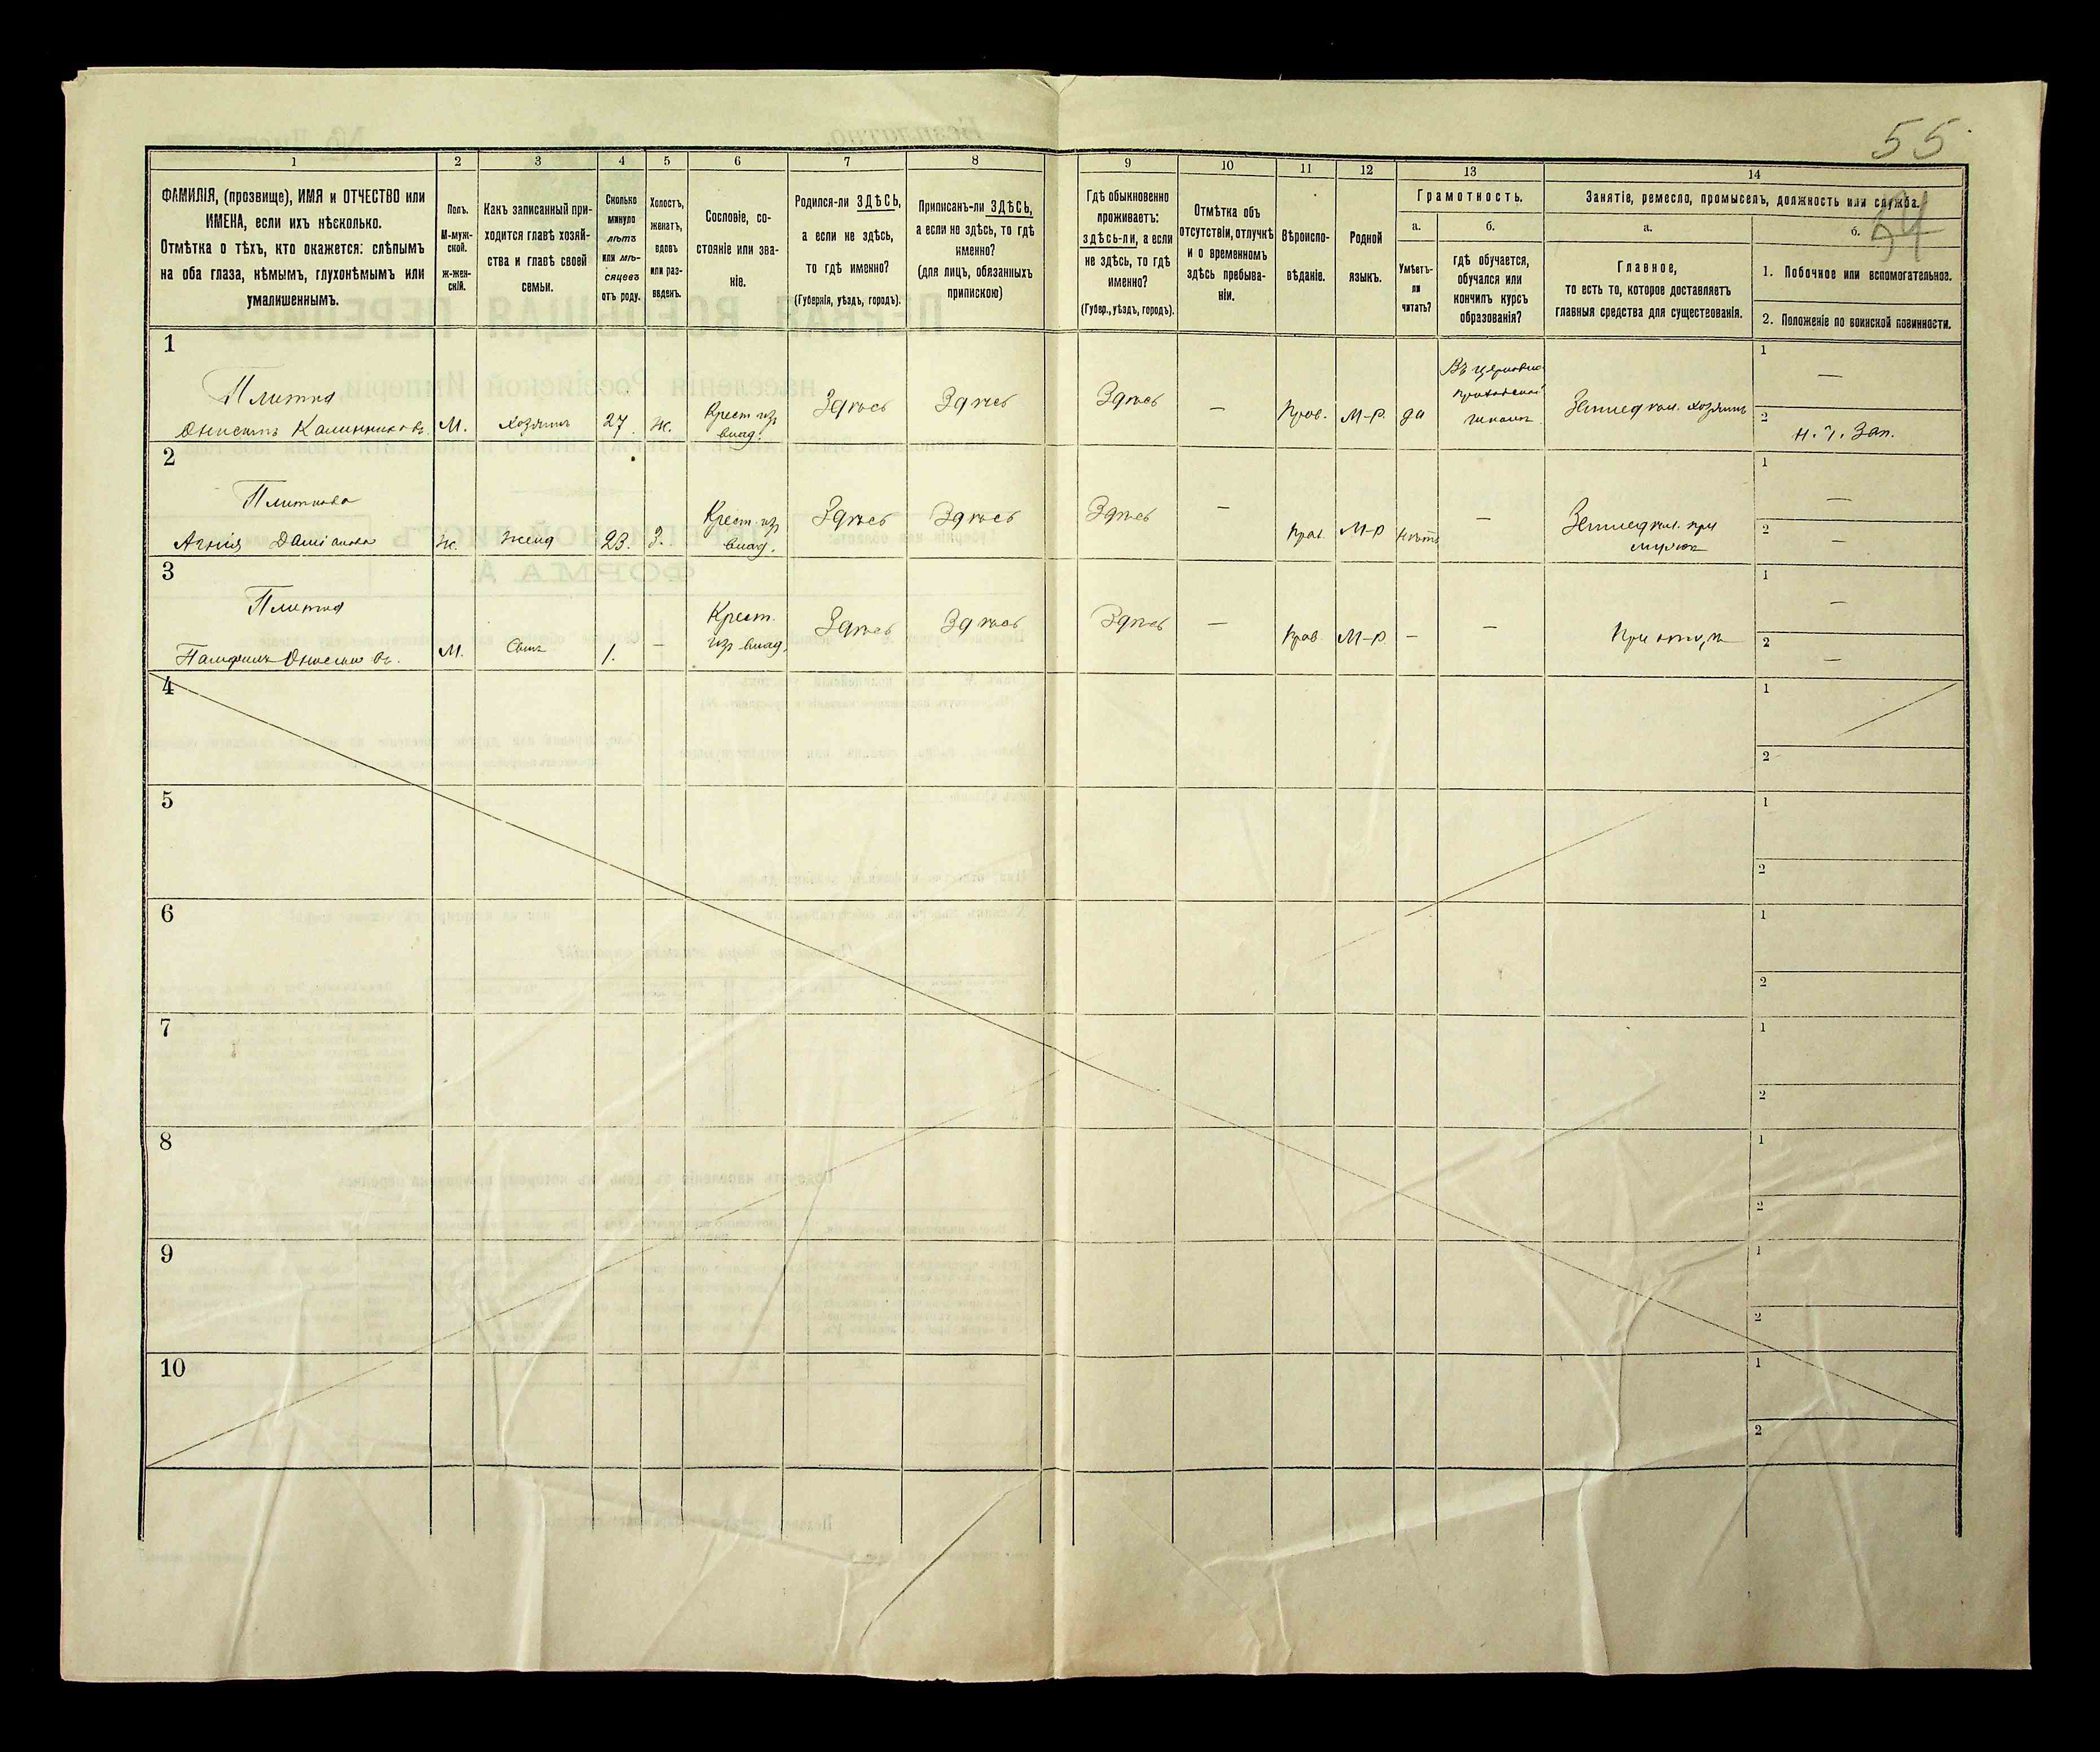 55
54
1
2
3
4
5
6
7
8
9
10
11
12
13
14
ФАМИЛІЯ, (прозвище), ИМЯ и ОТЧЕСТВО или
ИМЕНА, если ихъ нѣсколько.
Отмѣтка о тѣхъ, кто окажется: слѣпымъ
на оба глаза, нѣмымъ, глухонѣмымъ или
умалишеннымъ.
Полъ.
М-муж-
ской.
ж-жен-
скій.
Какъ записанный при-
ходится главѣ хозяй-
ства и главѣ своей
семьи.
Сколько
минуло
лѣтъ
или мѣ-
сяцевъ
отъ роду.
Холостъ,
женатъ,
вдовъ
или раз-
веденъ.
Сословіе, со-
стояніе или зва-
ніе.
Родился-ли ЗДѢСЬ,
а если не здѣсь,
то гдѣ именно?
(Губернія, уѣздъ, городъ).
Приписанъ-ли ЗДѢСЬ,
а если не здѣсь, то гдѣ
именно?
(для лицъ, обязанныхъ
припискою)
Гдѣ обыкновенно
проживаетъ:
здѣсь-ли, а если
не здѣсь, то гдѣ
именно?
(Губер., уѣздъ, городъ).
Отмѣтка объ
отсутствіи, отлучкѣ
и о временномъ
здѣсь пребыва-
ніи.
Вѣроиспо-
вѣданіе.
Родной
языкъ.
Грамотность.
а.
Умѣетъ-
ли
читать?
б.
гдѣ обучается,
обучался или
кончилъ курсъ
образованія?
Занятіе, ремесло, промыселъ, должность или служба.
а.
Главное,
то есть то, которое доставляетъ
главныя средства для существованія.
б.
1. Побочное или вспомогательное.
2. Положеніе по воинской повинности.
1
Плитка
Онисимъ Калинниковъ.
М.
Хозяинъ
27
ж.
Крест. изъ
влад.
Здѣсь
Здѣсь
Здѣсь
—
Прав.
М-р.
да
Въ церковно
приходской
школѣ
Земледѣл. хозяинъ
1
—
2
Н. ч. Зап.
2
Плиткова
Агнія Даміанова
Ж.
Жена
23.
З.
Крест. изъ
влад.
Здѣсь
Здѣсь
Здѣсь
—
Прав.
М-р
нѣтъ
—
Земледѣл. при
мужѣ
1
—
2
—
3
Плитка
Памфилъ Онисимовъ.
М.
Сынъ
1.
—
Крест.
изъ влад.
Здѣсь
Здѣсь
Здѣсь
—
Прав
М-р.
—
—
При отцѣ
1
—
2
—
4
1
2
5
1
2
6
1
2
7
1
2
8
1
2
9
1
2
10
1
2